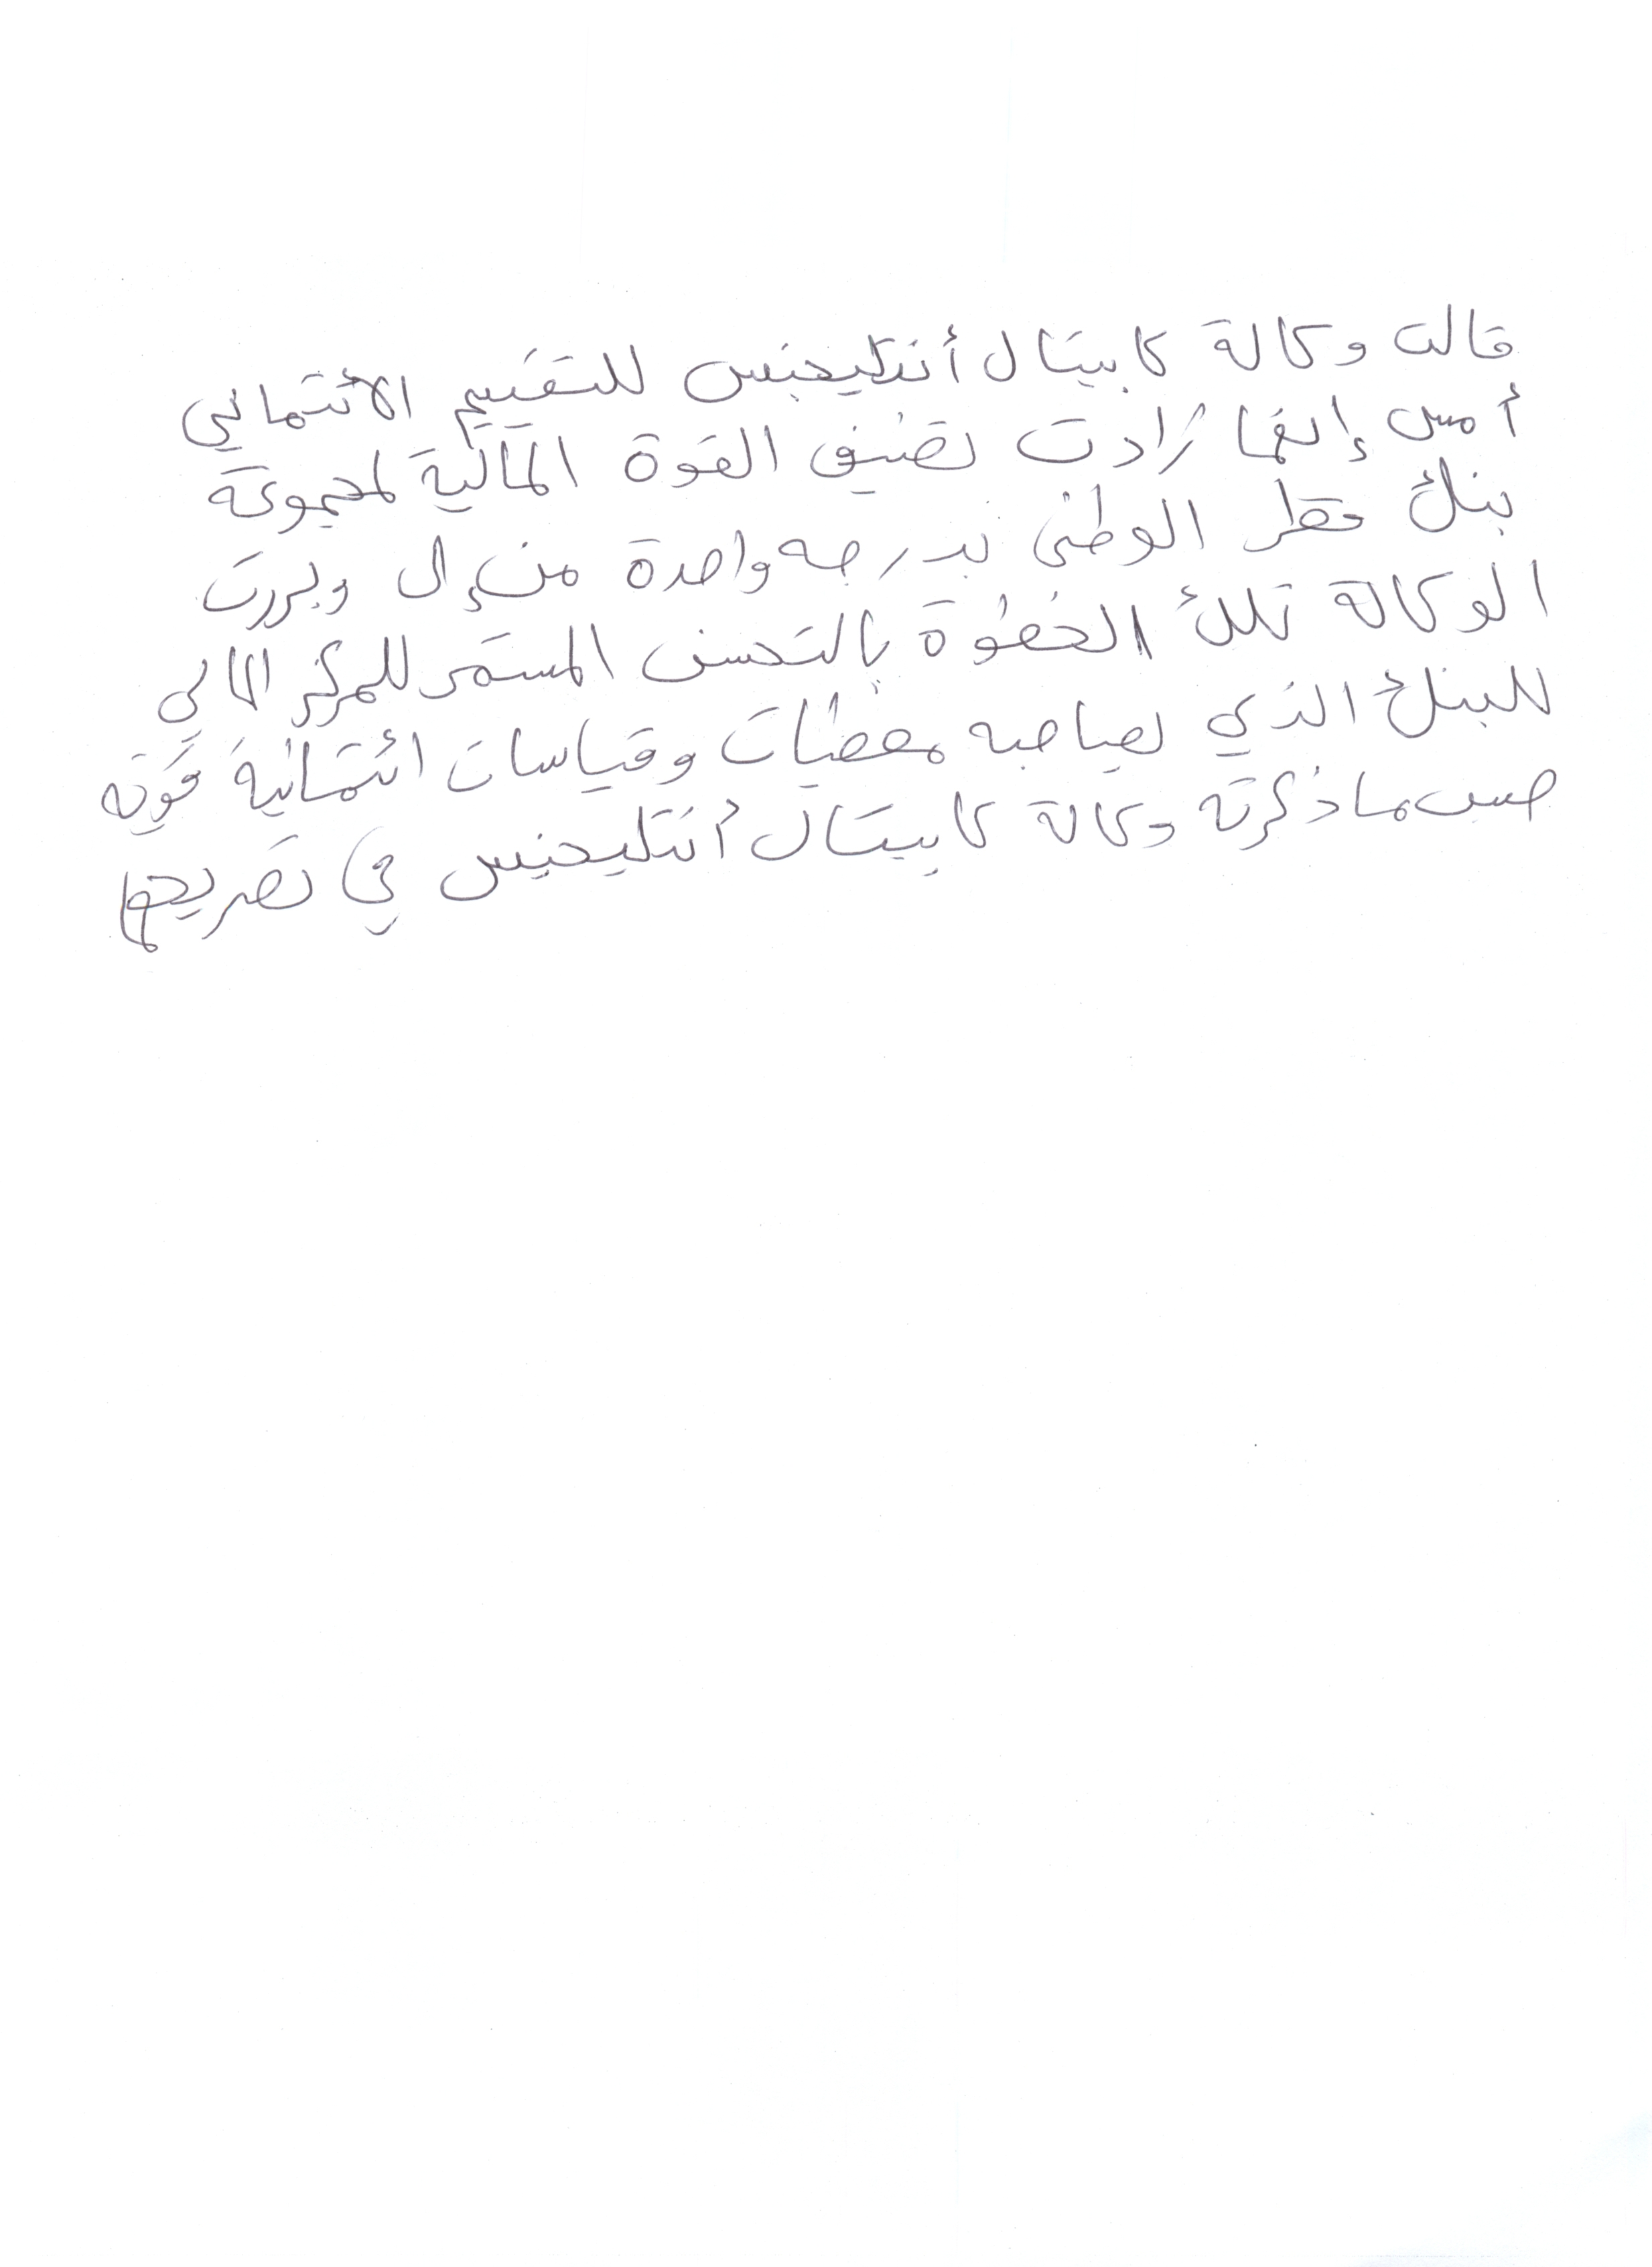 قالت وكالة كابيتال أنتليجنس للتقييم الائتماني
أمس إنها زادت تصنيف القوة المالية لمجموعة
بنك قطر الوطني بدرجه واحدة من إل وبررت
الوكالة تلك الخطوة بالتحسن المستمر للمركز المالي
للبنك الذي يصاحبه معطيات وقياسات ائتمانية قويه
حسب ما ذكرته وكالة كابيتال أنتليجنس في تصريحها